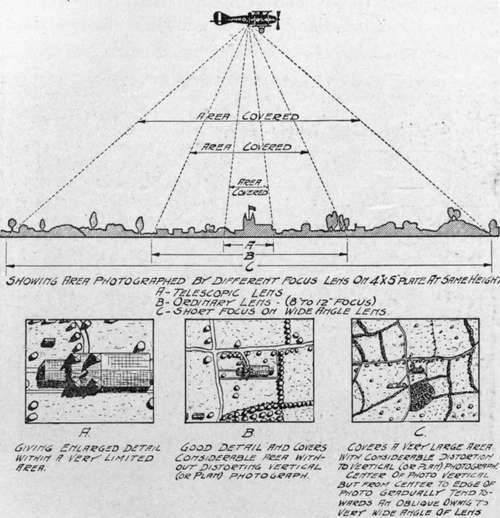 AREA COVERED
AREA COVERED
AREA
COVERED
A
B
C
SHOWING AREA PHOTOGRAPHED BY DIFFERENT FOCUS LENS ON 4"X5" PLATE AT SAME HEIGHT
A - TELESCOPIC LENS
B - ORDINARY LENS - (8" TO 12" FOCUS)
C - SHORT FOCUS OR WIDE ANGLE LENS.
A
GIVING ENLARGED DETAIL
WITHIN A VERY LIMITED
AREA.
B
GOOD DETAIL AND COVERS
CONSIDERABLE AREA WITH-
OUT DISTORTING VERTICAL
(OR PLAN) PHOTOGRAPH.
C.
COVERS A VERY LARGE AREA
WITH CONSIDERABLE DISTORTION
TO VERTICAL (OR PLAN) PHOTOGRAPH.
CENTER OF PHOTO VERTICAL
BUT FROM CENTER TO EDGE OF
PHOTO GRADUALLY TEND TO-
WARDS AN OBLIQUE OWING TO
VERY WIDE ANGLE OF LENS